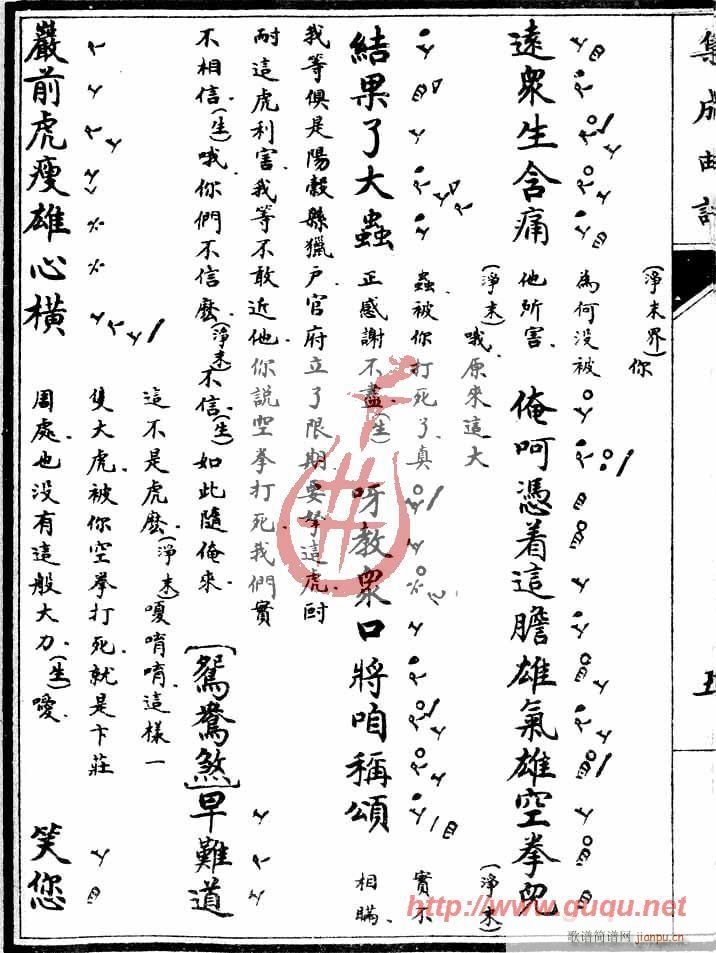 集成曲譜
遠衆生含痛
(淨末界)你
為何没被
他所害.
俺呵憑着這膽雄氣雄空拳兒
結果了大蟲
(淨末)哦.原來這大
蟲.被你打死了.真
正感謝不盡.(生)
呀教衆口將咱稱頌
(淨末)
實不
相瞞.
我等俱是陽穀縣獵户.官府立了限期.要拏這虎.尀
耐這虎利害.我等不敢近他.你說空拳打死.我們實
不相信.(生)哦.你們不信麽.(淨末)不信.(生)如此隨俺來.
[鴛鴦煞]早難道
巖前虎瘦雄心橫
這不是虎麽.(淨末)嗄唷唷.這樣一
隻大虎.被你空拳打死.就是卞莊
周處.也没有這般大力.(生)嗳.
笑您
http://www.guqu.net
歌谱简谱网
jianpu.cn